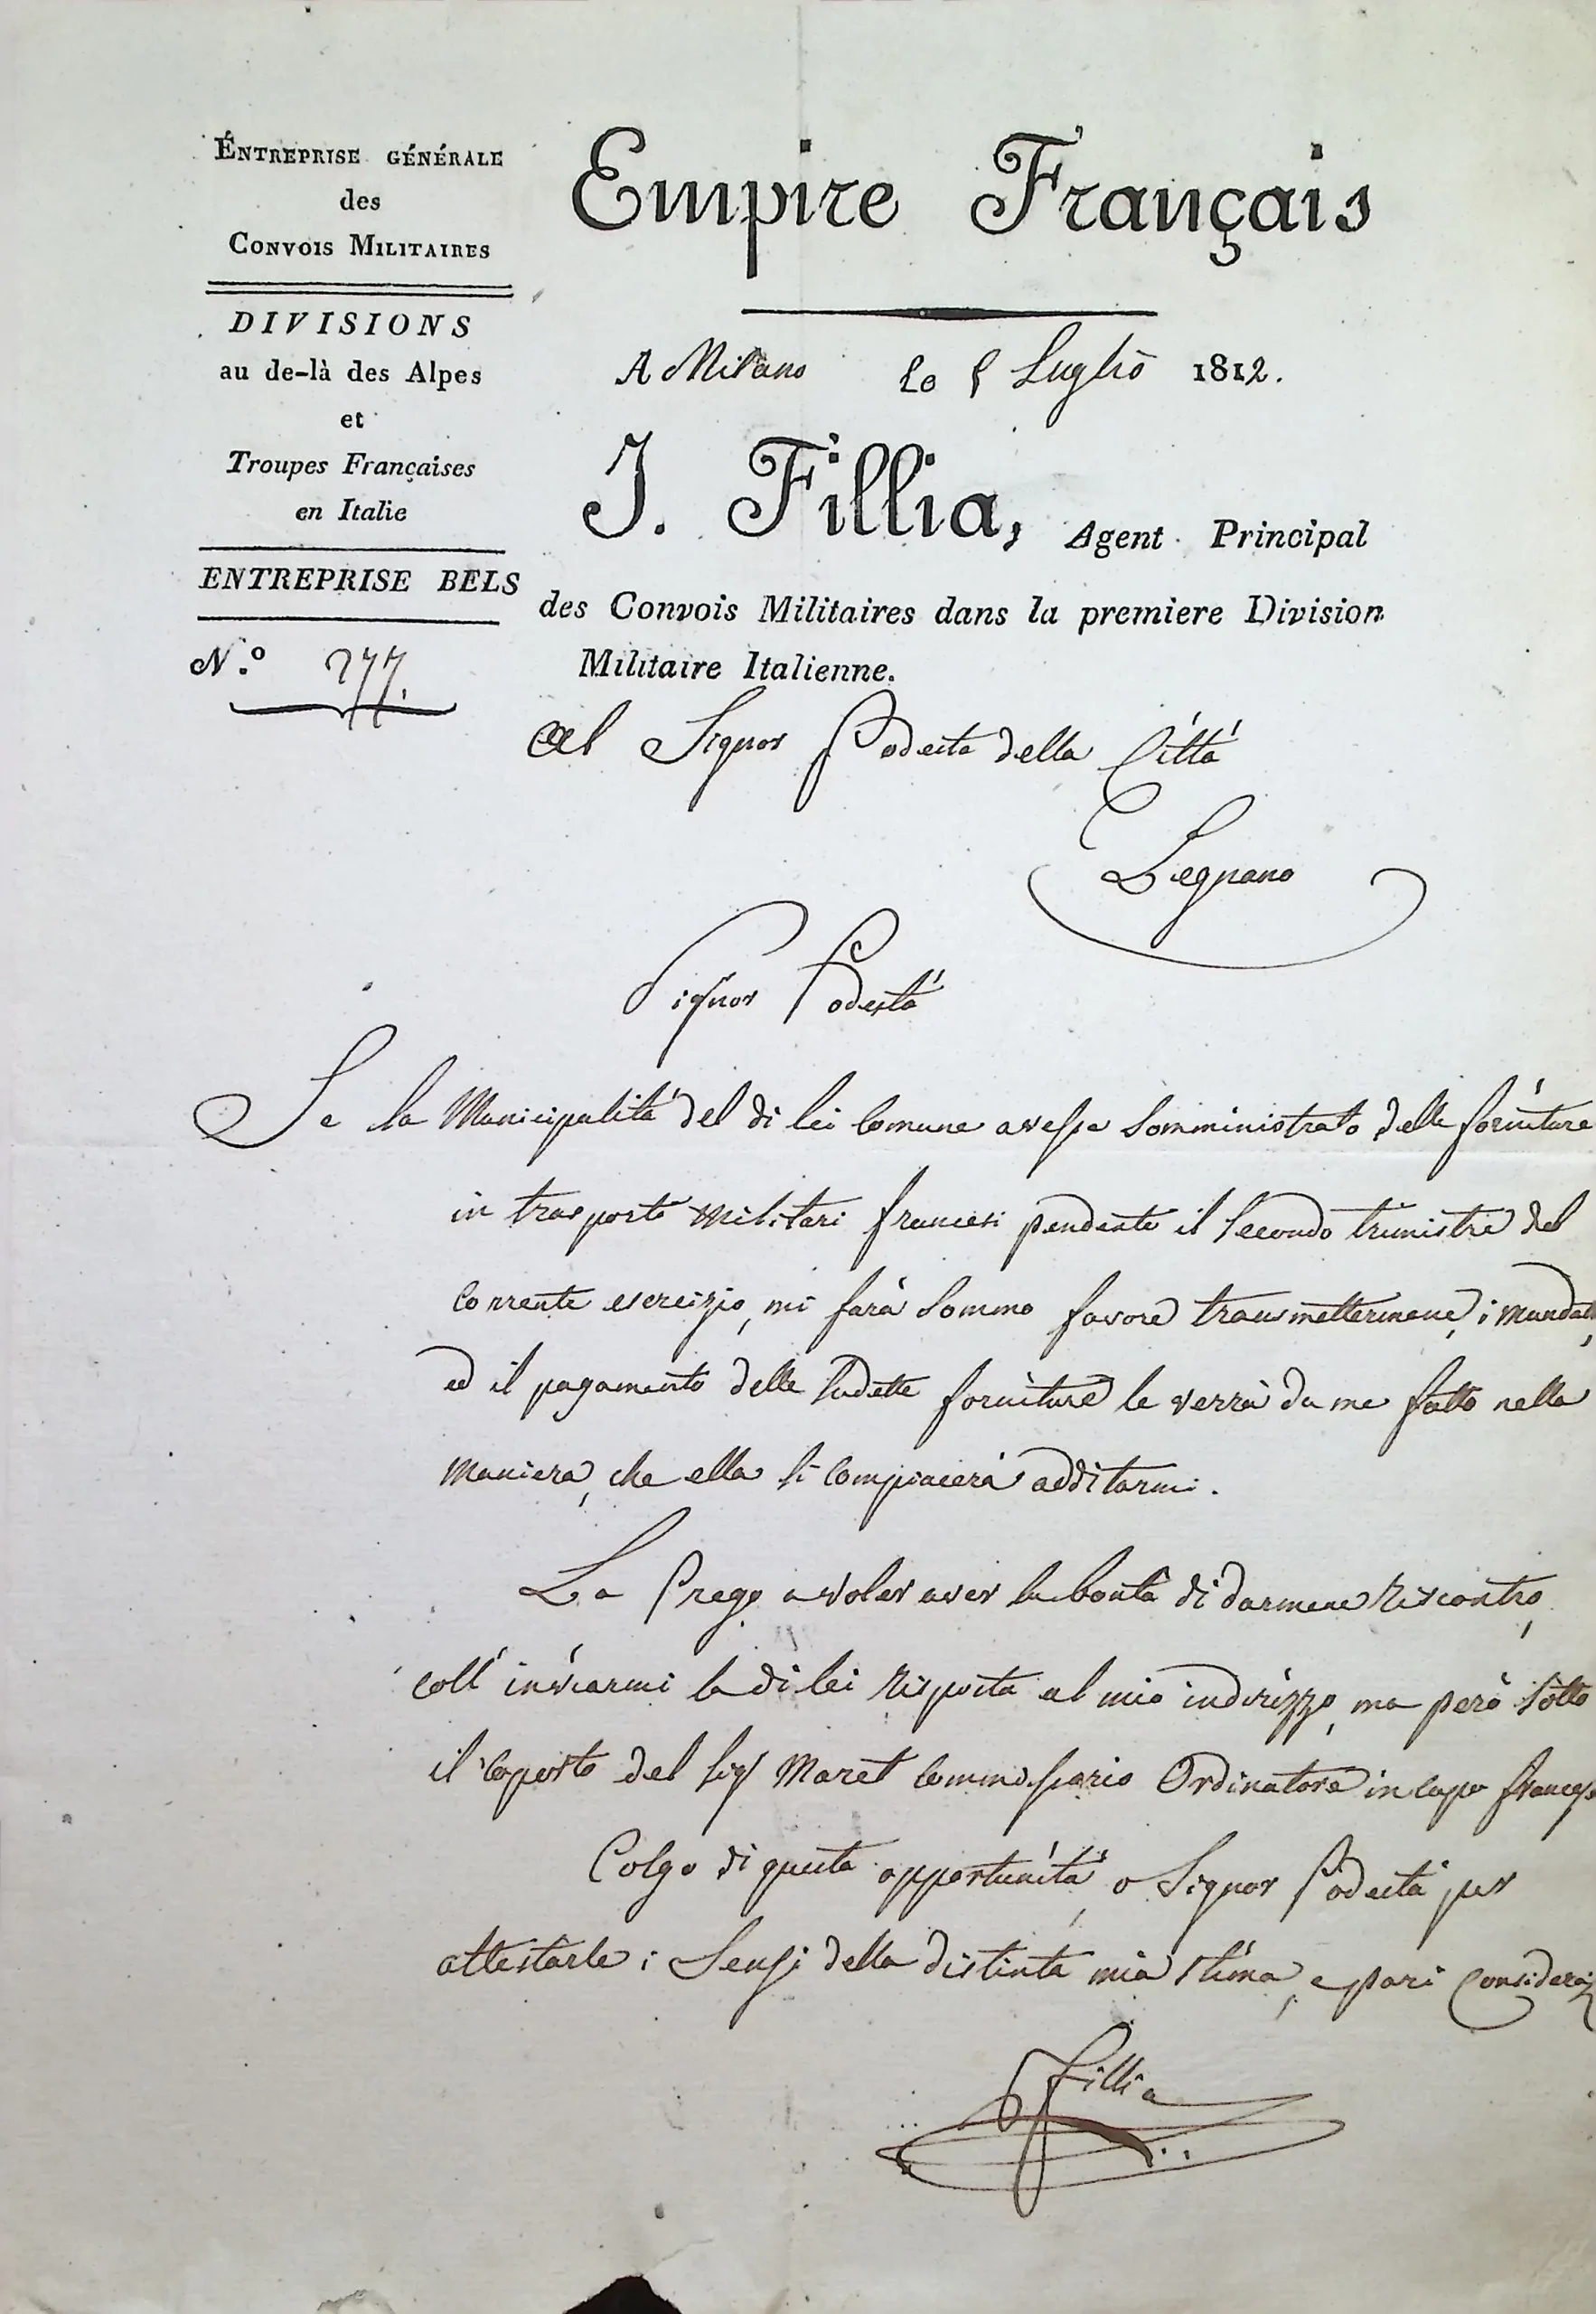 ENTREPRISE GÉNÉRALE
des
CONVOIS MILITAIRES
DIVISIONS
au de-là des Alpes
et
Troupes Françaises
en Italie
ENTREPRISE BELS
N.º 277.
Empire Français
A Milano le 5 Luglio 1812.
J. Fillia, Agent Principal
des Convois Militaires dans la premiere Division
Militaire Italienne.
Al Signor Podesta della Città
Legnano
Signor Podestà
Se la Municipalità del di lei Comune avesse Somministrato delle forniture
in trasporti Militari francesi pendente il Secondo trimestre del
Corrente esercizio, mi farà Sommo favore transmettermene, i Mandati,
ed il pagamento delle Sudette forniture le verrà da me fatto nella
Maniera, che ella Si Compiacerà additarmi.
La Prego a voler aver la bontà di darmene riscontro,
coll' inviarmi la di lei risposta al mio indirizzo, ma però Sotto
il Coperto del Sigr Maret Commissario Ordinatore in Capo francese
Colgo di questa opportunità, o Signor Podestà per
attestarle i Sensi della distinta mia Stima, e pari Consideraz
Fillia